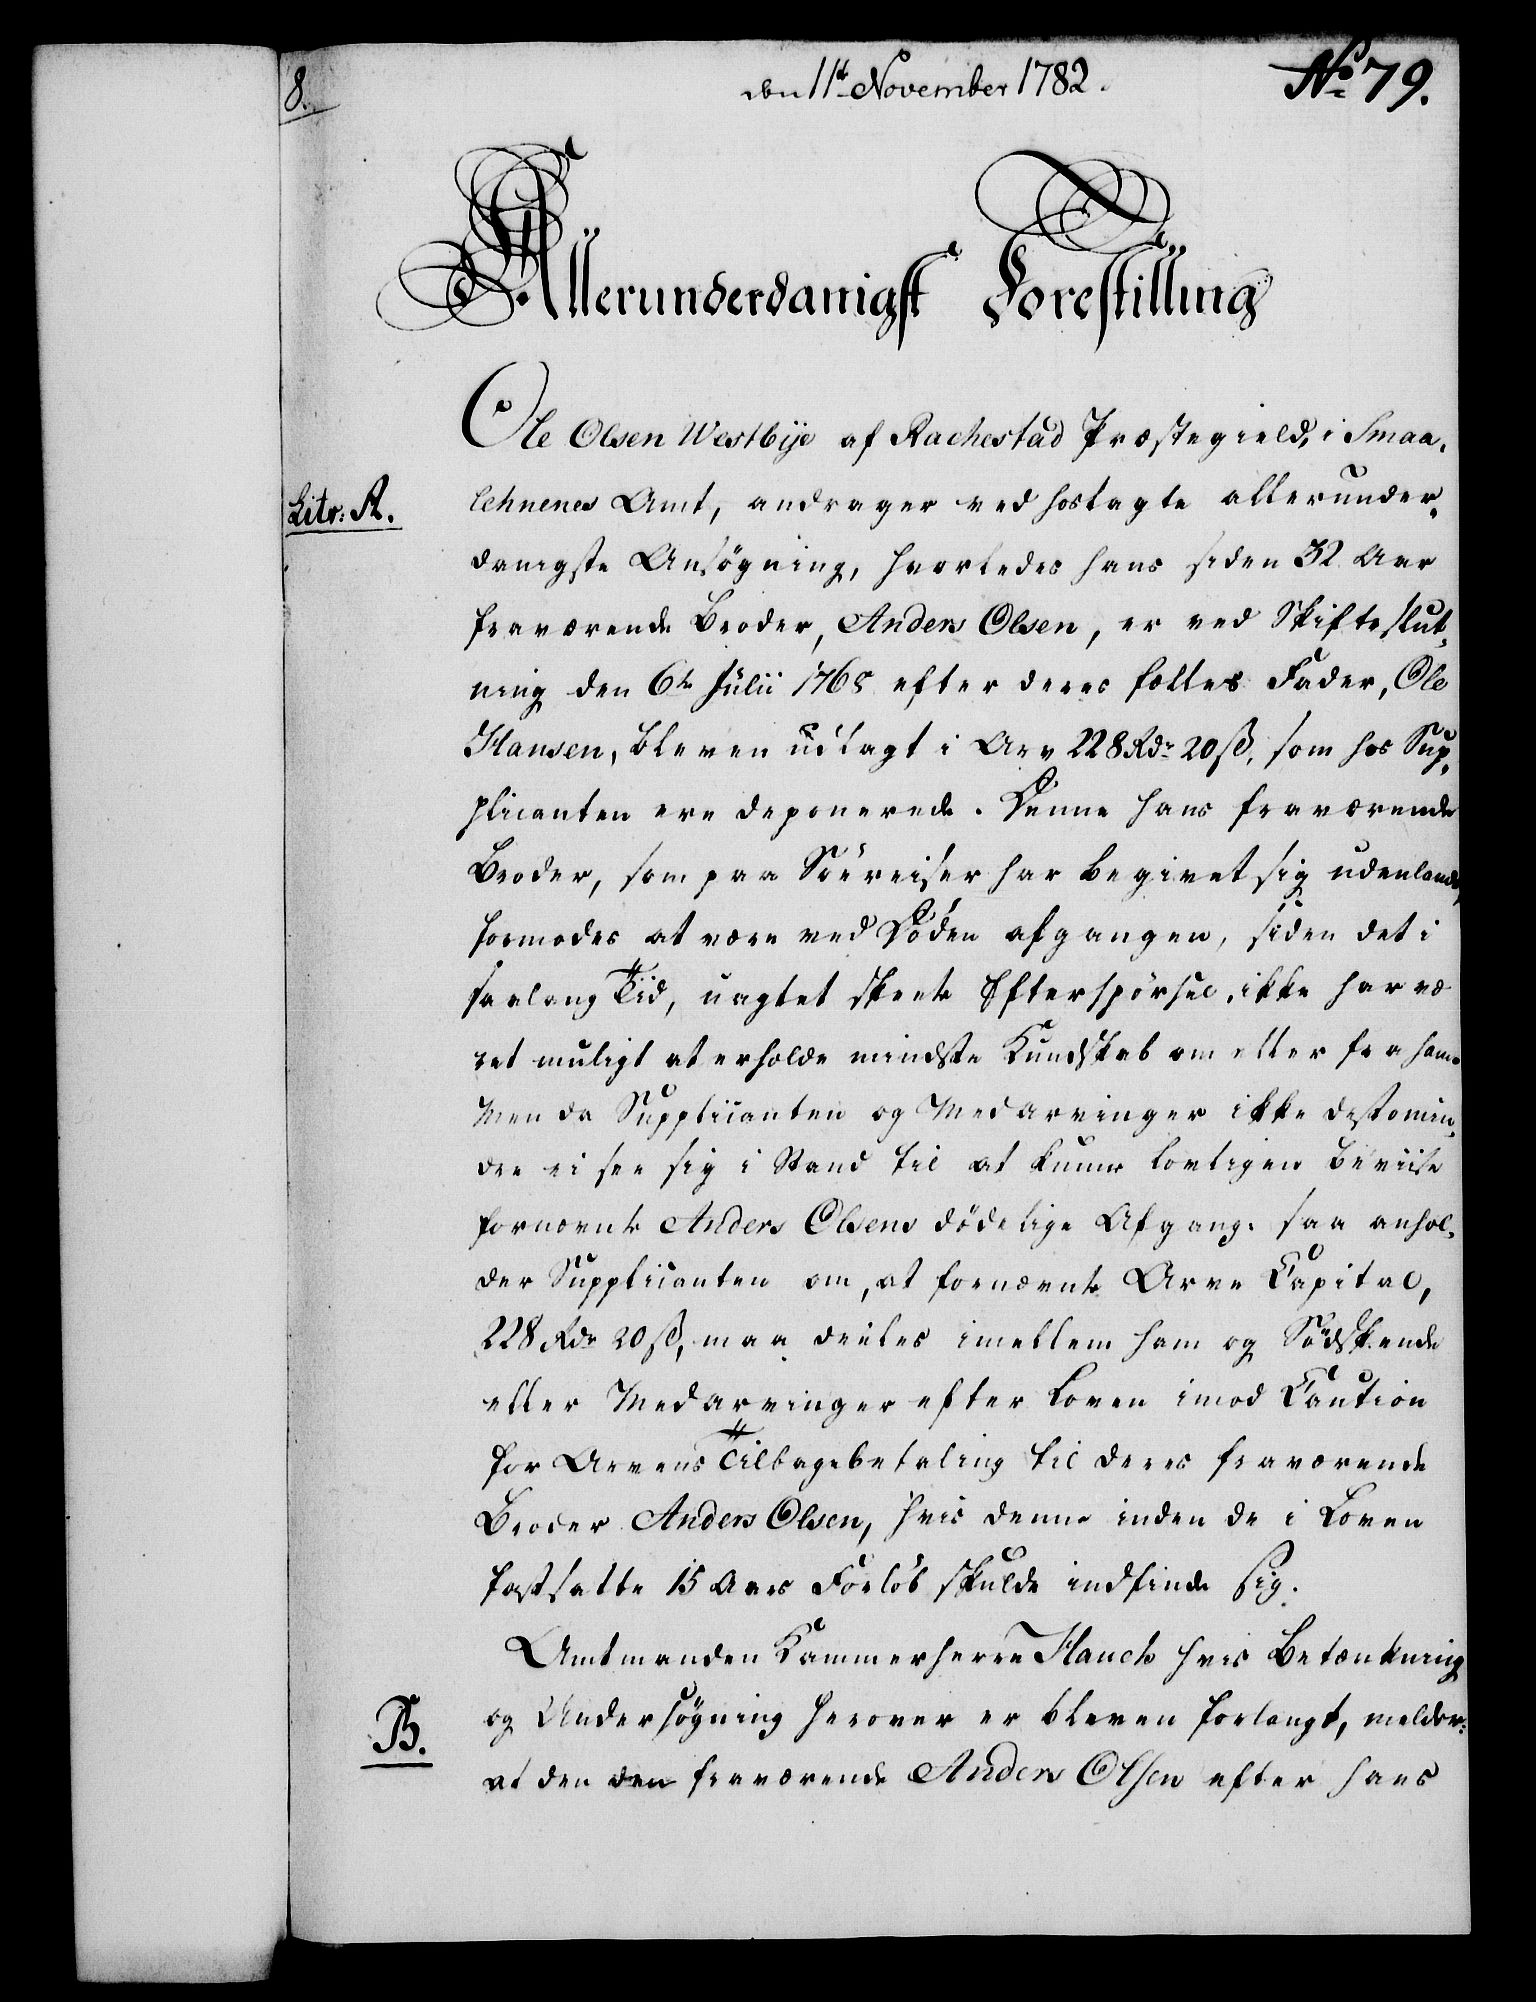 8.
den 11t November 1782.
No 79.
Allerunderdanigst Forestilling
Ole Olsen Westbÿe af Rachestad Præstegield, i Smaa„
Litr: A.
lehnenes Amt, andrager ved hoslagte allerunder„
danigste Ansøgning, hvorledes hans siden 32 Aar
fraværende Broder, Anders Olsen, er ved Skifteslut„
ning den 6te Julii 1765 efter deres fælles Fader, Ole
Hansen, bleven udlagt i Arv 228 Rdr 20 ß, som hos Sup„
plicanten ere deponerede. Denne hans fraværende
Broder, som paa Søereiser har begivet sig udenlands,
formodes at være ved Døden afgangen, siden det i
saa lang Tiid, uagtet skeete Efterspørsel, ikke har væ
ret muligt at erholde mindste Kundskab om eller fra ham.
Men da Supplicanten og Medarvinger ikke destomin„
dre ei see sig i Stand til at kunne lovligen beviise
fornævnte Anders Olsens dødelige Afgang. saa anhol„
der Supplicanten om, at fornævnte Arve Capital,
228 Rdr 20 ß, maa deeles imellem ham og Södskende
eller Medarvinger efter Loven imod Caution
for Arvens Tilbagebetaling til deres fraværende
Broder Anders Olsen, hvis denne inden de i Loven
fastsatte 15 Aars Forløb skulde indfinde sig.
Amtmanden Kammerherre Hauch hvis Betænkning
B.
og Undersøgning herover er bleven forlangt, melder:
at den den fraværende Anders Olsen efter hans